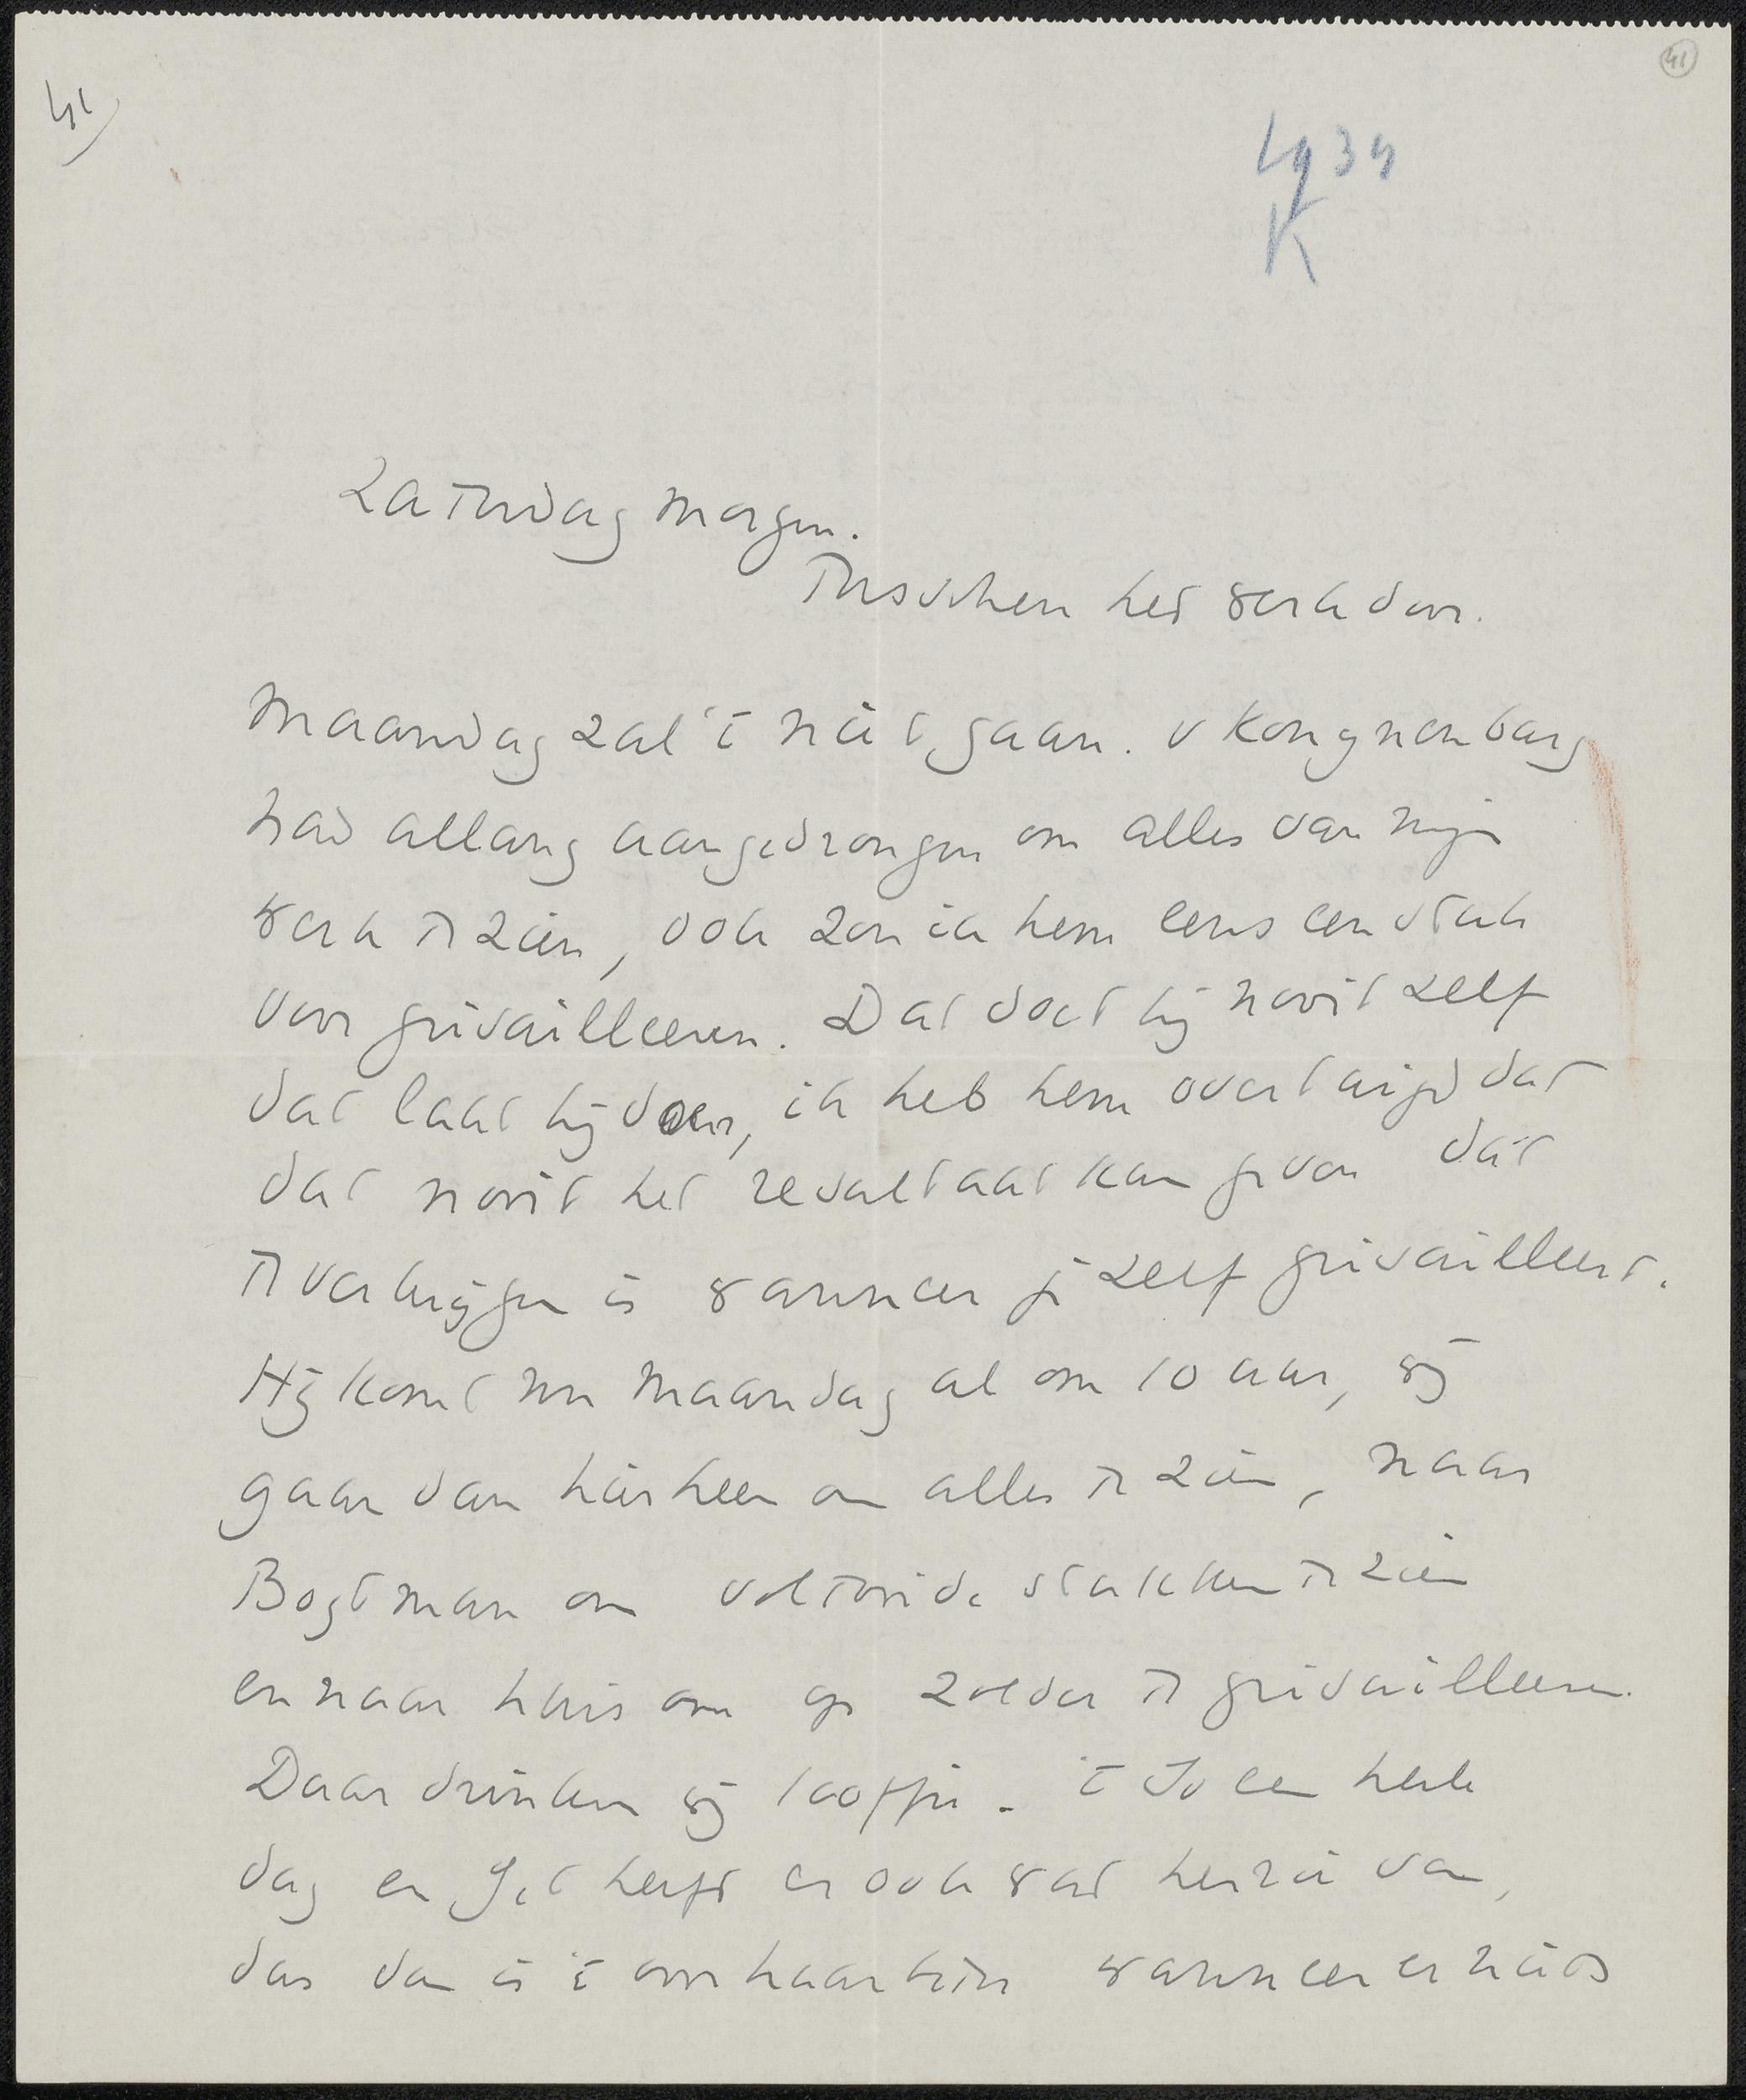 41
41
1934
K
Zaterdag morgen.
Tusschen het werk door.
Maandag zal 't niet gaan. v Konynenburg
had allang aangedrongen om alles van mijn
werk te zien, ook zou ik hem eens een stuk
voor grisailleeren. Dat doet hij nooit zelf
dat laat hij doen, ik heb hem overtuigd dat
dat nooit het resultaat kan geven dat
te verkrijgen is wanneer je zelf grisailleert.
Hij komt nu Maandag al om 10 uur, wij
gaan dan hierheen om alles te zien, naar
Bogtman om voltooide stukken te zien
en naar huis om op zolder te grisailleeren.
Daar drinken wij koffie. 't Is een heele
dag en Jet heeft er ook wat herrie van,
dus dan is 't voor haar beter wanneer er niets